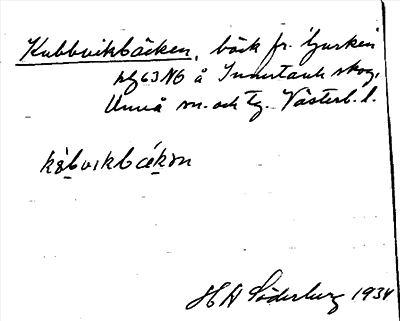 Kubbvikbäcken, bäck fr. tjurken
hy63N6 å Innertavle skog,
Umeå sn. och tg. Västerb. l.
kɵ̀bvikbækən
H A Söderberg 1934